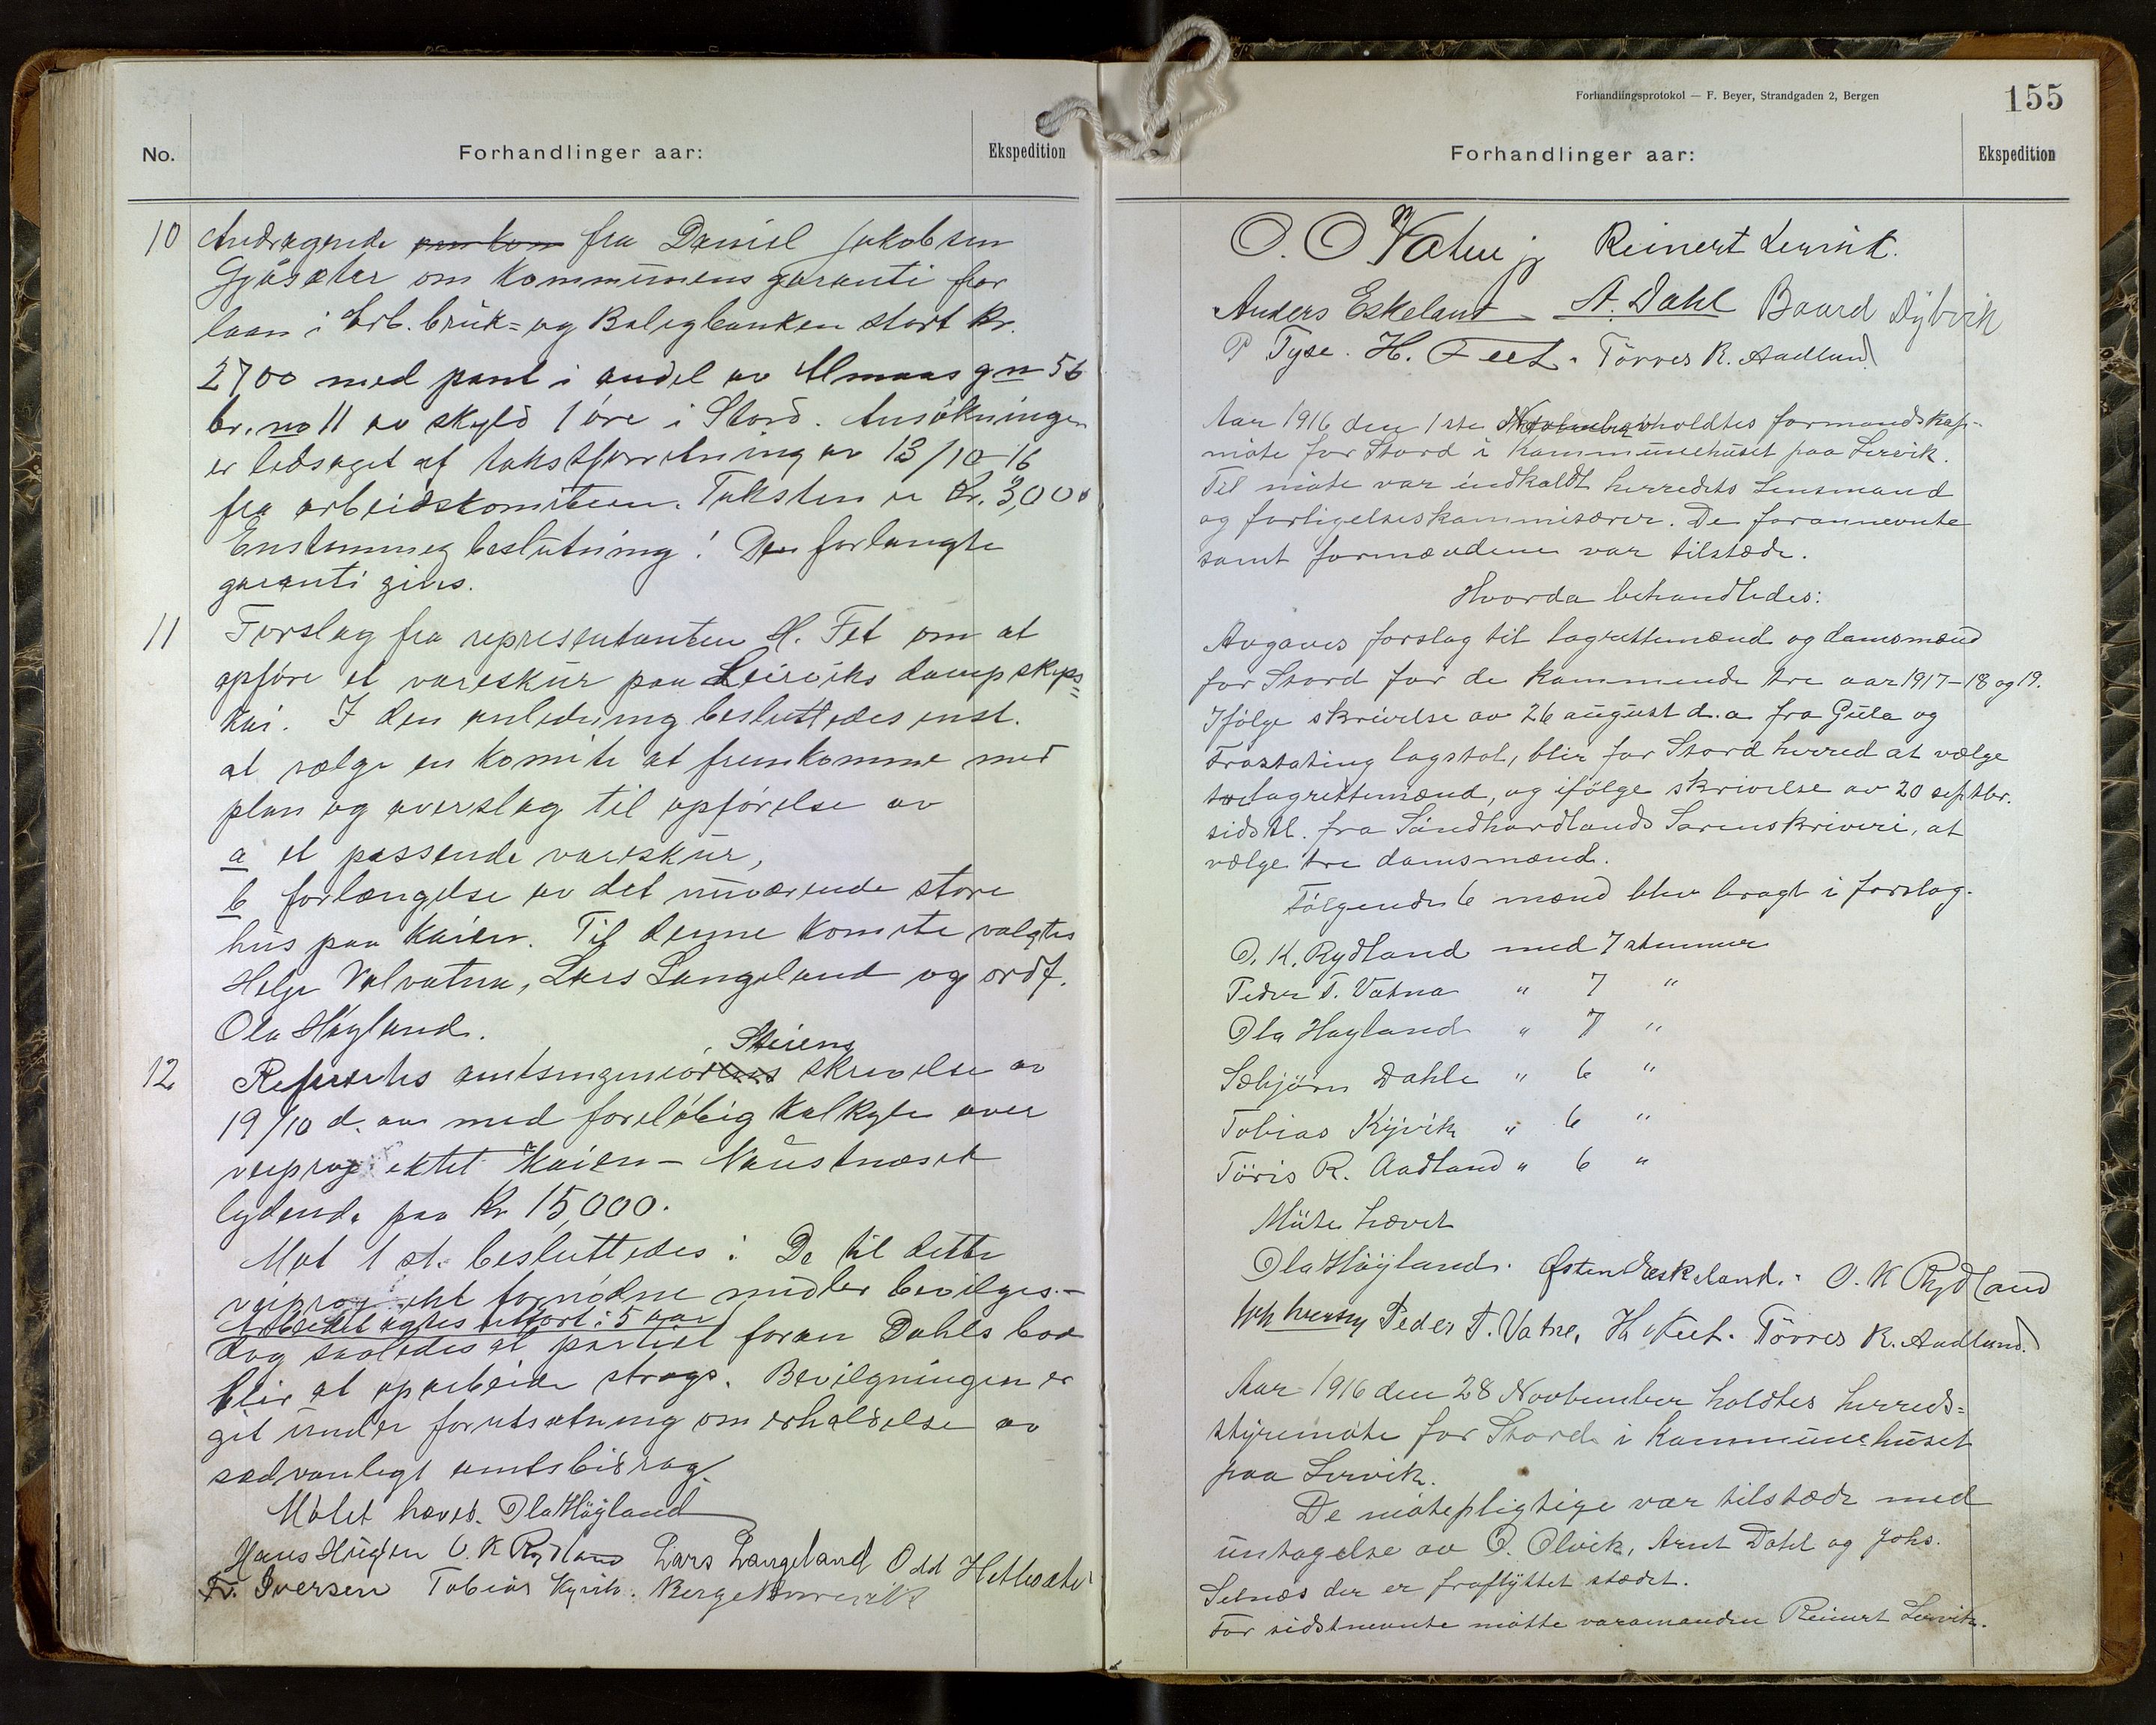 No. Forhandlinger aar: Ekspedition
10 Andragende fra Daniel Jakobsen
Gjøsæter om kommunens garanti for
laan i Arb. bruk= og Boligbanken stort kr.
2700 med pant i andel av Almaas gn 56
br. no 11 av skyld 1 øre i Stord. Ansøkningen
er ledsaget af takstforretning av 13/10-16
fra arbeidskomiteen. Taksten er kr. 3,000
Enstemmig beslutning! Den forlangte
garanti gives.
11 Forslag fra representanten H. Fet om at
opføre et vareskur paa Leirviks dampskips=
kai. I den anledning besluttedes enst.
at vælge en komite at fremkomme med
plan og overslag til opførelse av
a et passende vareskur,
b forlængelse av det nuværende store
hus paa kaien. Til denne komite valgtes
Helge Valvatna, Lars Langeland og ordf.
Ola Høyland.
Steiens
12 Refereertes amtsingeniør skrivelse av
19/10 d. aa med foreløbig kalkyle over
veiprojektet Kaien - Naustneset
lydende paa kr 15,000.
Mot 1 st. besluttedes: De til dette
veiprojekt fornødne midler bevilges.-
Arbeidet agtes utført i 5 aar
dog saaledes at partiet foran Dahls bod
blir at oparbeide strags. Bevilgningen er
git under forutsætning om erholdelse av
sædvanligt amtsbidrag.
Møtet hævet. Ola Høyland
Hans Hugøen O. K Rydland Lars Langeland Odd Hetlesæter
Fr. Iversen Tobias Kyvik. Berge
Forhandlingsprotokol — F. Beyer, Strandgaden 2, Bergen
155
Forhandlinger aar: Ekspedition
O. O Vatne jr Reinert Lervik.
Anders Eskeland - A. Dahl Baard Dybvik
P Tyse. H. Feet. Tørres R. Aadland
Aar 1916 den 1ste November holdtes formandskap-
møte for Stord i Kommunehuset paa Lervik.
Til møte var indkaldt herredets Lensmand
og forligelseskommisærer. De forannevnte
samt formændene var tilstæde.
Hvorda behandledes:
Avgaves forslag til lagrettemænd og domsmænd
for Stord for de kommende tre aar 1917-18 og 19.
Ifølge skrivelse av 26 august d. a fra Gula og
Frostating lagstol, blir for Stord herred at vælge
to lagrettemænd, og ifølge skrivelse av 20 septbr.
sidstl. fra Søndhordlands Sorenskriveri, at
vælge tre domsmænd.
Følgende 6 mænd blev bragt i forslag.
O. K. Rydland med 7 stemmer
Peder T. Vatna " 7 "
Ola Høyland " 7 "
Sæbjørn Dahle " 6 "
Tobias Kyvik " 6 "
Tøris R. Aadland " 6 "
Møte hævet
Ola Høyland. Østen Eskeland. O. K Rydland
Peder T. Vatne, H. Feet. Tørres R. Aadland.
Aar 1916 den 28 Noobember holdtes herreds=
styremøte for Stord i Kommunehuset
paa Lervik.
De møtepligtige var tilstæde med
untagelse av O. Olvik, Arnt Dahl og Johs.
Selnæs der er fraflyttet stædet.
For sidstnevnte møtte varamanden Reinert Lervik.